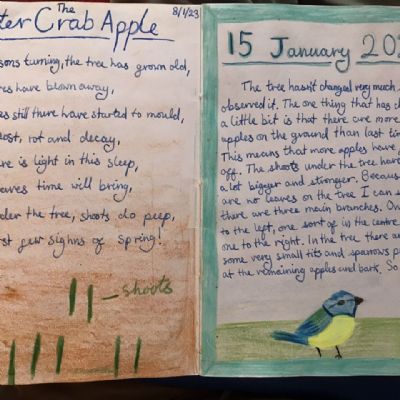 The
ter Crab Apple
8/1/23
sons turning, the tree has grown old,
es have blown away,
es still there have started to mould,
ost, rot and decay,
re is light in this sleep,
eaves time will bring,
der the tree, shoots do peep,
st few sighns of spring!
shoots
15 January 202
The tree hasn't changed very much
observed it. The one thing that has ch
a little bit is that there are more
apples on the ground than last tim
This means that more apples have
off. The shoots under the tree have
a lot bigger and stronger. Because
are no leaves on the tree I can s
there are three main branches. On
to the left, one sort of in the centre
one to the right. In the tree there are
some very small tits and sparrows p
at the remaining apples and bark. So